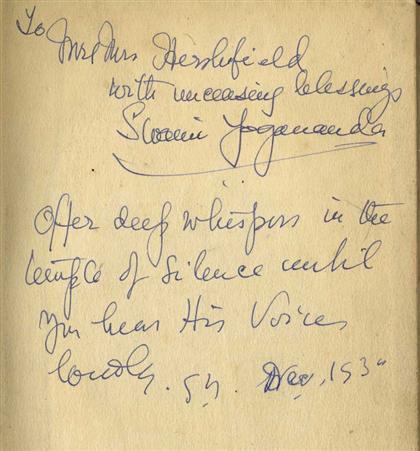 To
Mr & Mrs Hershfield
with unceasing blessings
Swami Yogananda
Offer deep whispers in the
temple of silence until
you hear His Voice
loudly. S.Y. 193